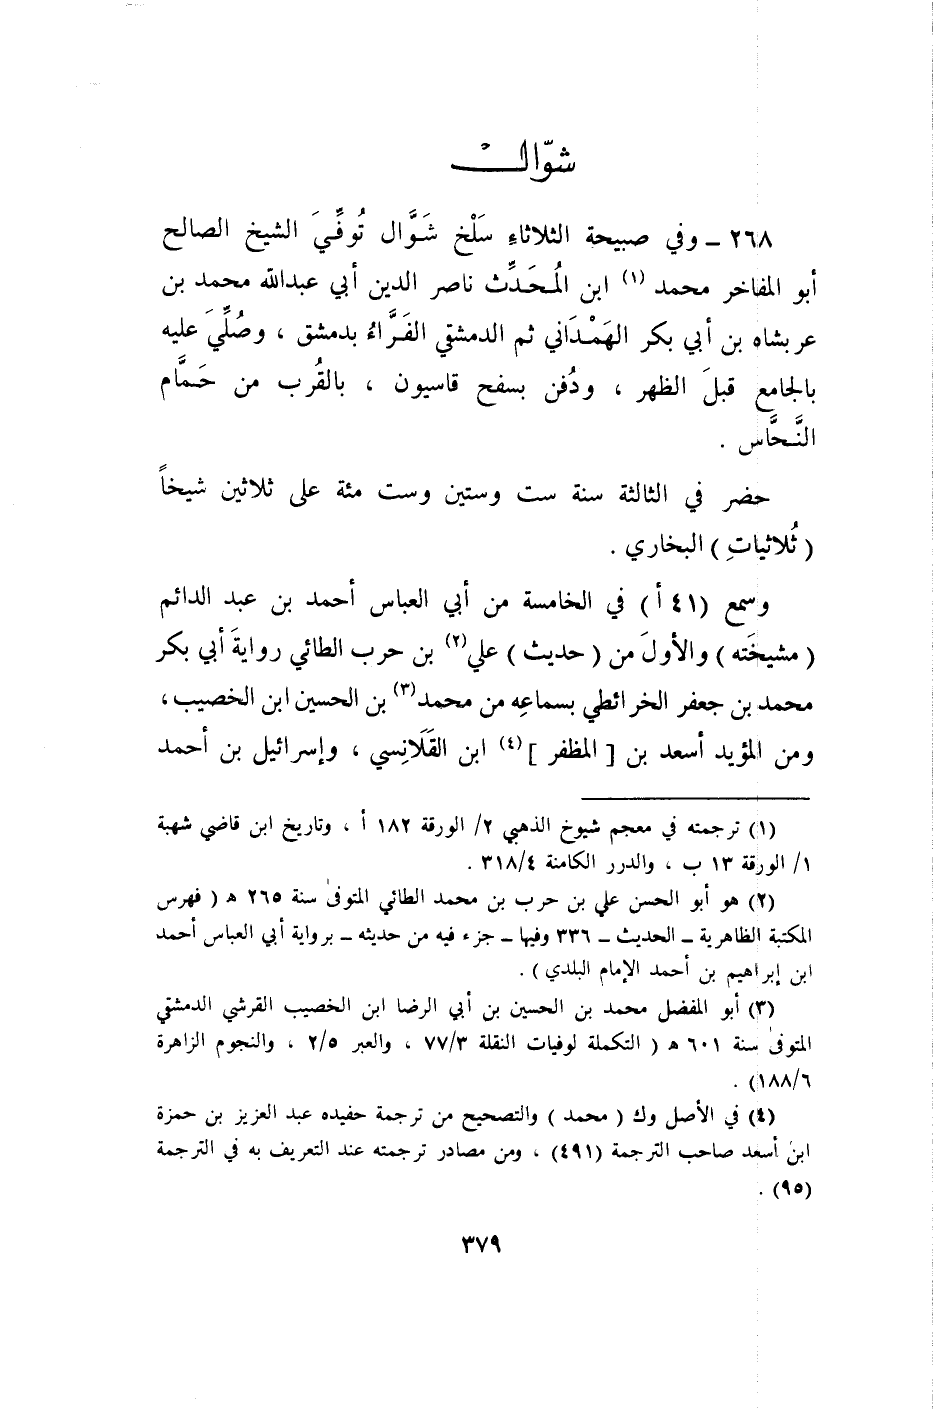 شوّال
٢٦٨ ـ وفي صبيحة الثلاثاءِ سَلْخ شَوَّال تُوفِّيَ الشيخ الصالح
أبو المفاخر محمد (١) ابن المُحَدِّث ناصر الدين أبي عبدالله محمد بن
عربشاه بن أبي بكر الهَمْدَاني ثم الدمشقي الفَرَّاءُ بدمشق ، وصُلِّيَ عليه
بالجامع قبلَ الظهر ، ودُفن بسفح قاسيون ، بالقُرب من حَمَّام
النَّحَّاس .
حضر في الثالثة سنة ست وستين وست مئة على ثلاثين شيخاً
( ثُلاثياتِ ) البخاري .
وسمع (٤١ أ) في الخامسة من أبي العباس أحمد بن عبد الدائم
( مشيخَته ) والأولَ من ( حديث ) علي(٢) بن حرب الطائي روايةَ أبي بكر
محمد بن جعفر الخرائطي بسماعِه من محمد(٣) بن الحسين ابن الخصيب ،
ومن المؤيد أسعد بن [ المظفر ](٤) ابن القَلَانِسي ، وإسرائيل بن أحمد
(١) ترجمته في معجم شيوخ الذهبي ٢/ الورقة ١٨٢ أ ، وتاريخ ابن قاضي شهبة
١/ الورقة ١٣ ب ، والدرر الكامنة ٣١٨/٤ .
(٢) هو أبو الحسن علي بن حرب بن محمد الطائي المتوفىٰ سنة ٢٦٥ هـ ( فهرس
المكتبة الظاهرية ـ الحديث ـ ٣٣٦ وفيها ـ جزء فيه من حديثه ـ برواية أبي العباس أحمد
ابن إبراهيم بن أحمد الإمام البلدي ) .
(٣) أبو المفضل محمد بن الحسين بن أبي الرضا ابن الخصيب القرشي الدمشقي
المتوفىٰ سنة ٦٠١ هـ ( التكملة لوفيات النقلة ٧٧/٣ ، والعبر ٢/٥ ، والنجوم الزاهرة
١٨٨/٦) .
(٤) في الأصل وك ( محمد ) والتصحيح من ترجمة حفيده عبد العزيز بن حمزة
ابن أسعد صاحب الترجمة (٤٩١) ، ومن مصادر ترجمته عند التعريف به في الترجمة
(٩٥) .
٣٧٩